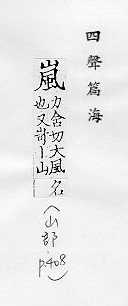 四聲篇海
嵐
力含切大風
也又岢丨山
名
(山部.
p.408)